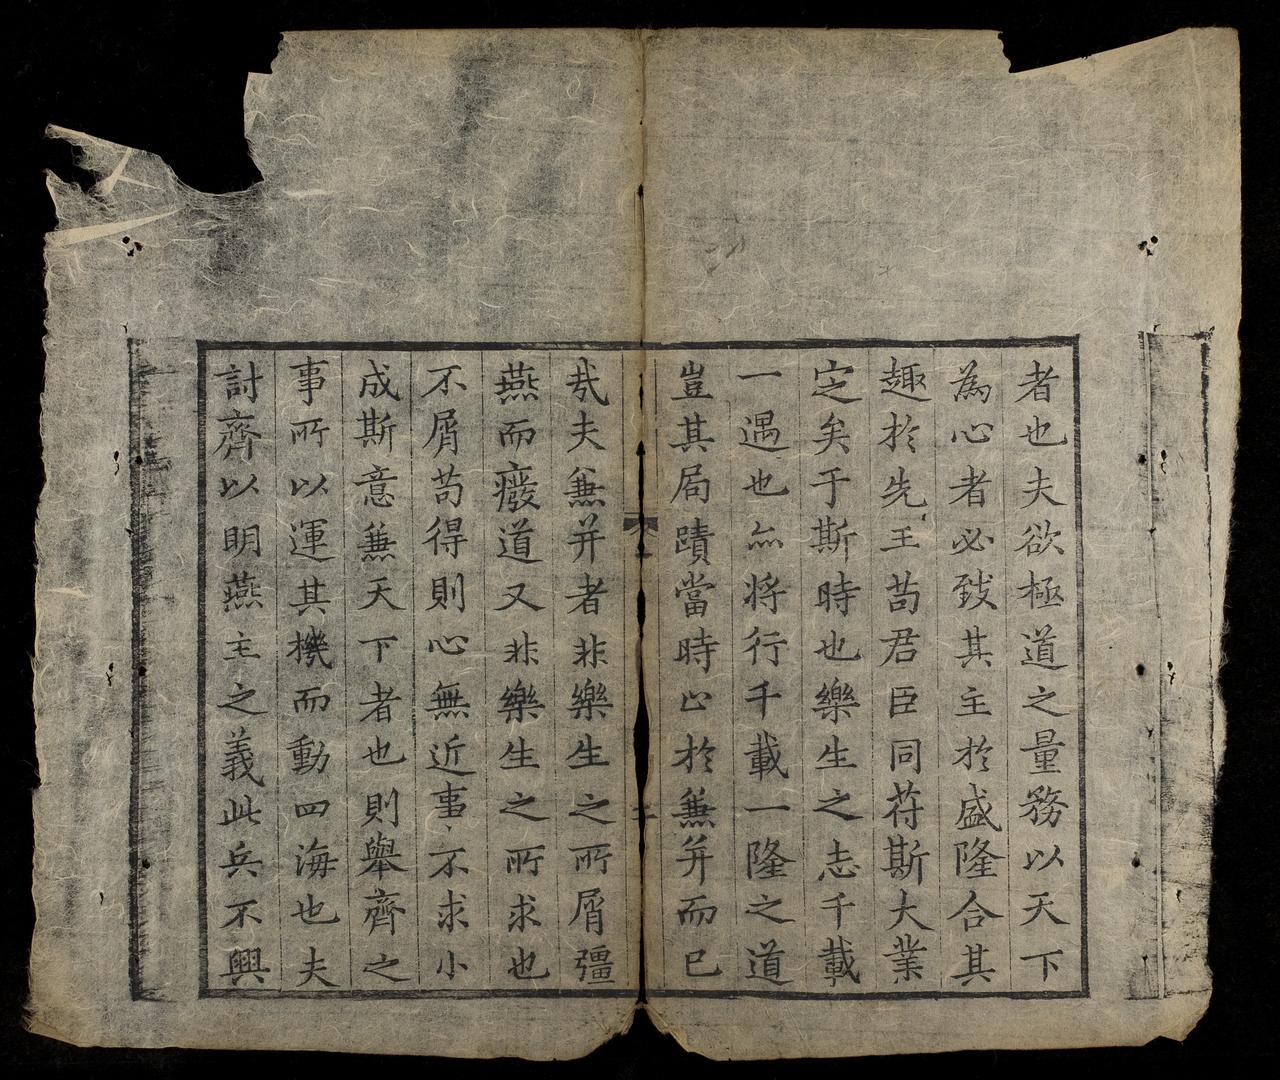 者也夫欲極道之量務以天下
為心者必致其主於盛隆合其
趣於先王苟君臣同苻斯大業
定矣于斯時也樂生之志千載
一遇也亦將行千載一隆之道
豈其局蹟當時止於兼并而已
㢤夫兼并者非樂生之所屑彊
燕而癈道又非樂生之所求也
不屑苟得則心無近事不求小
成斯意兼天下者也則舉齊之
事所以運其機而動四海也夫
討齊以明燕主之義此兵不興